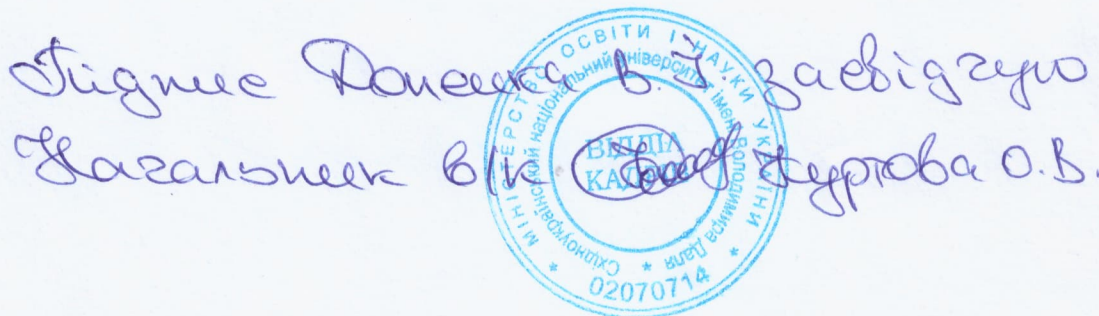 Підпис Донченка В.Ї. засвідчую
Начальник в/к Журтова О.В.
МІНІСТЕРСТВО ОСВІТИ І НАУКИ УКРАЇНИ
Східноукраїнський національний університет імені Володимира Даля
ВІДДІЛ
КАДРІВ
02070714